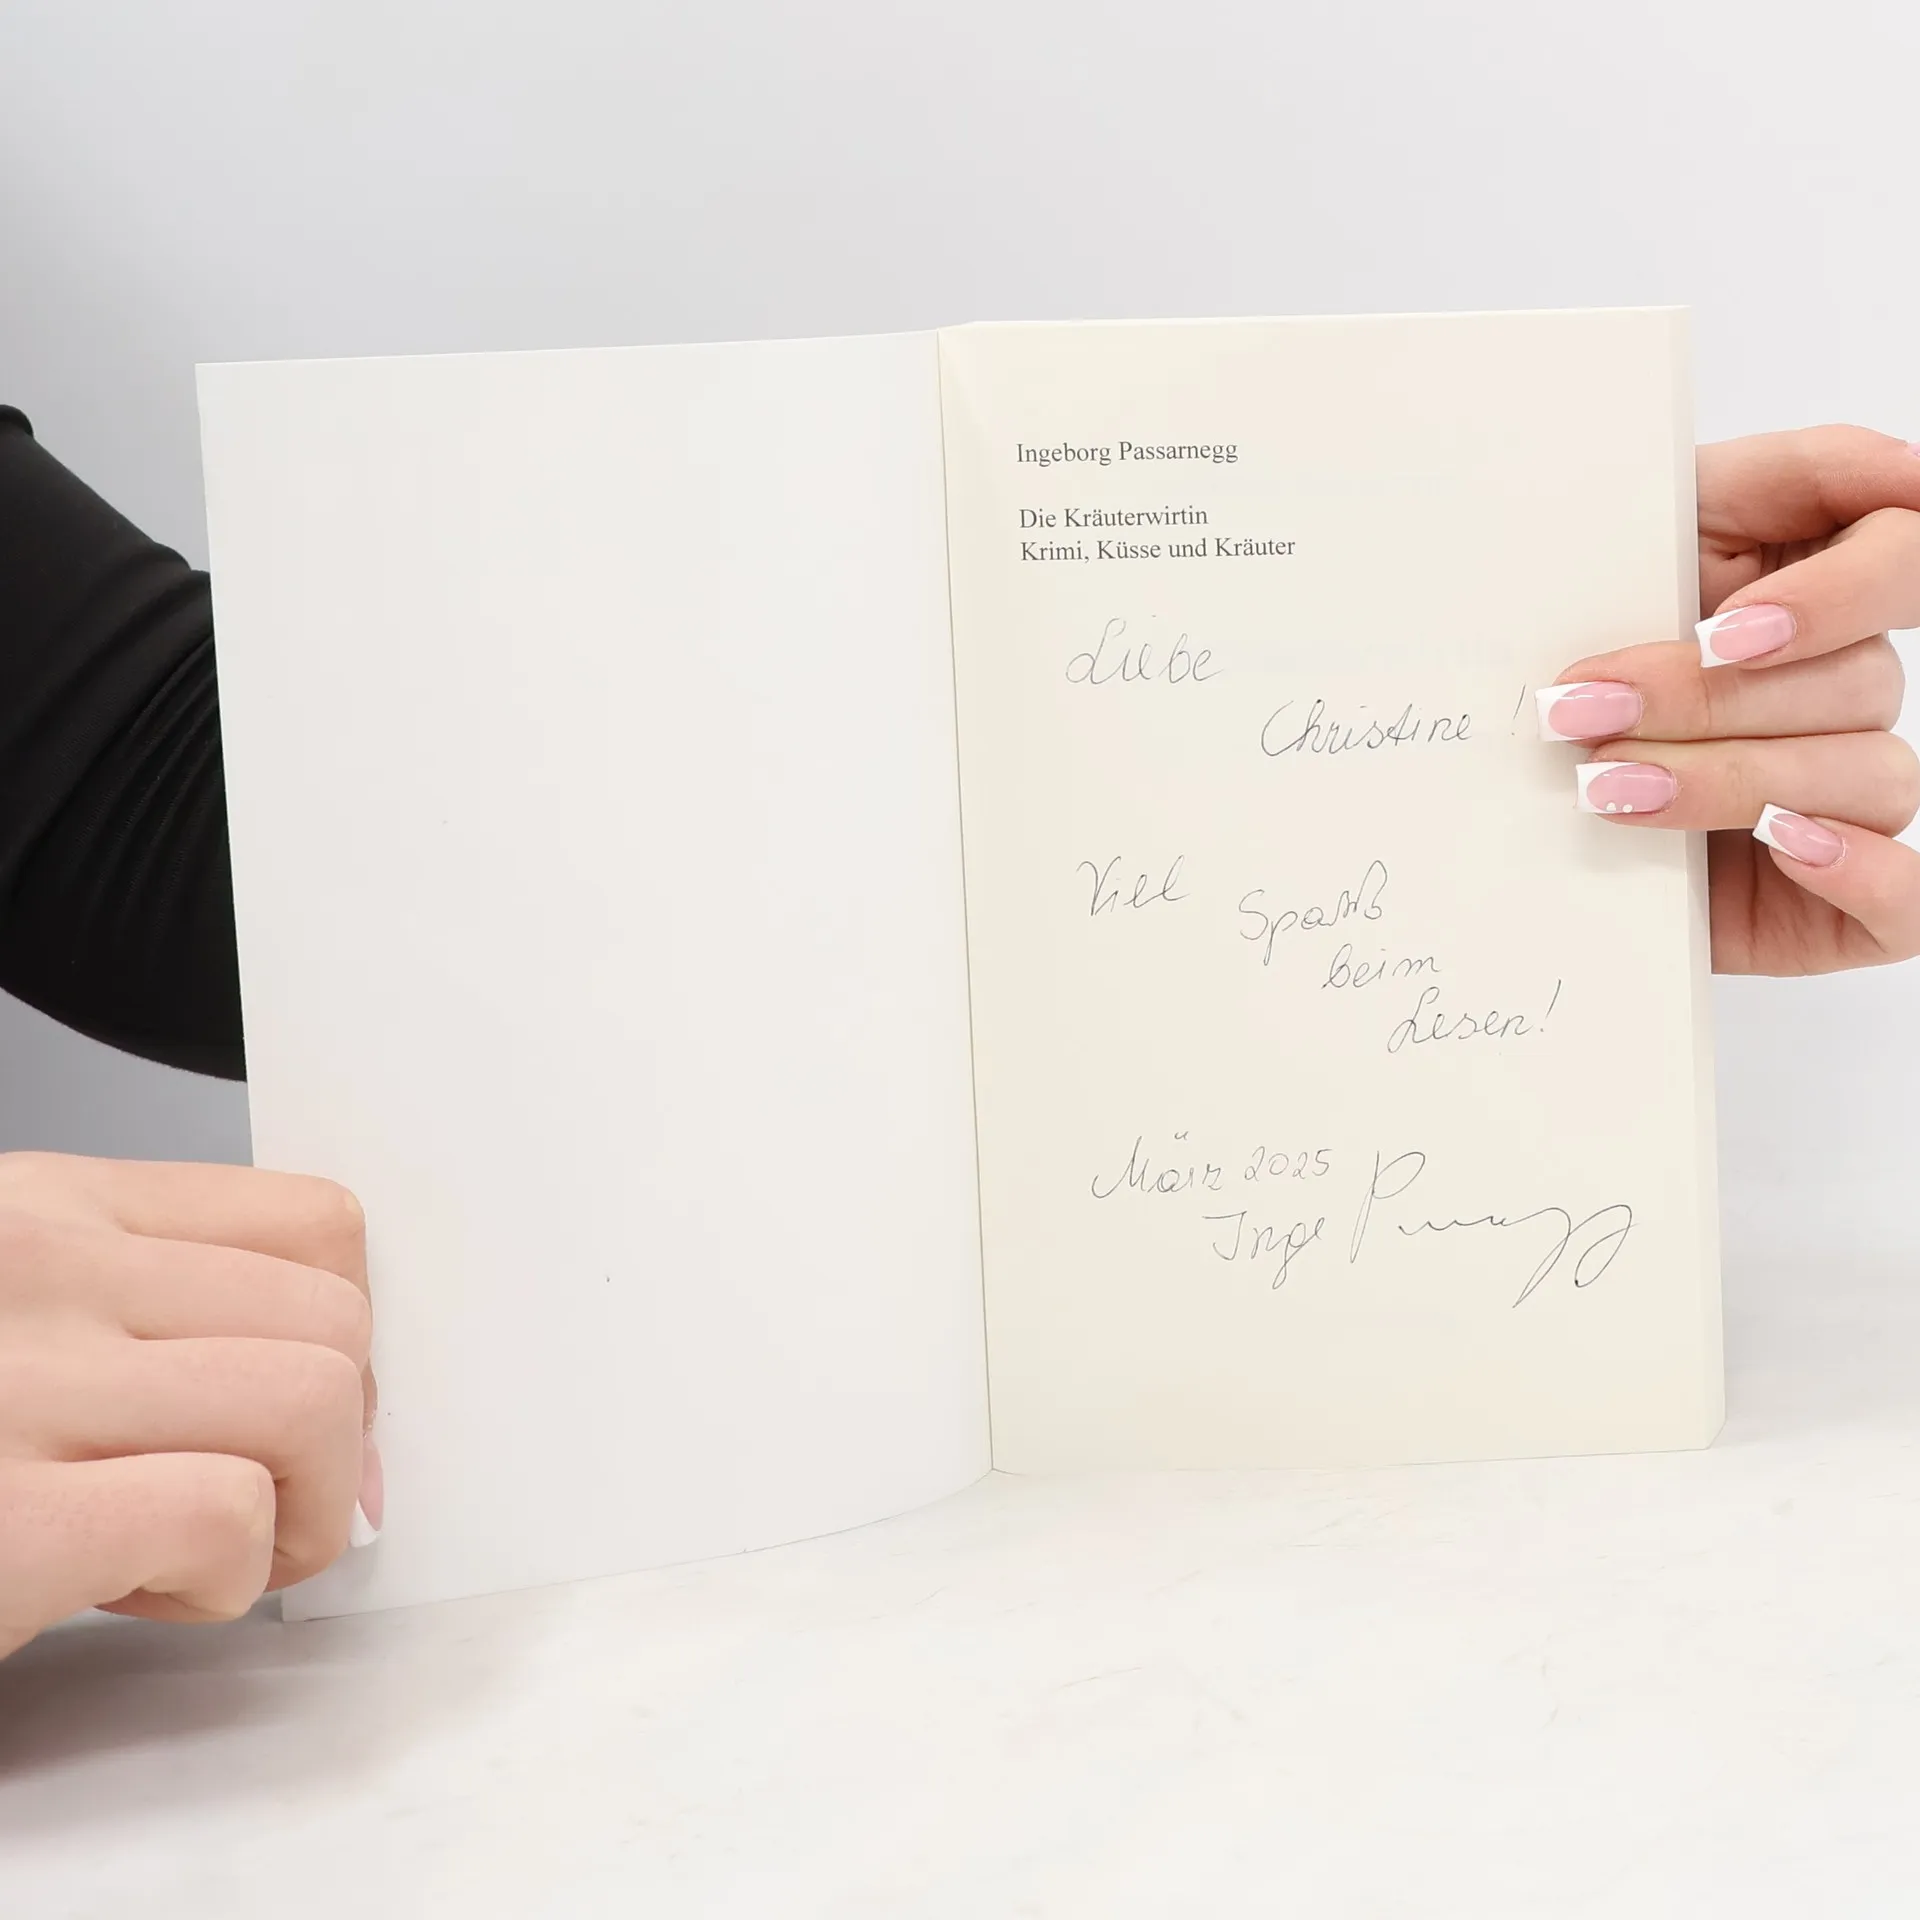 Ingeborg Passarnegg
Die Kräuterwirtin
Krimi, Küsse und Kräuter
Liebe
Christine!
Viel Spaß
beim
Lesen!
März 2025
Inge P